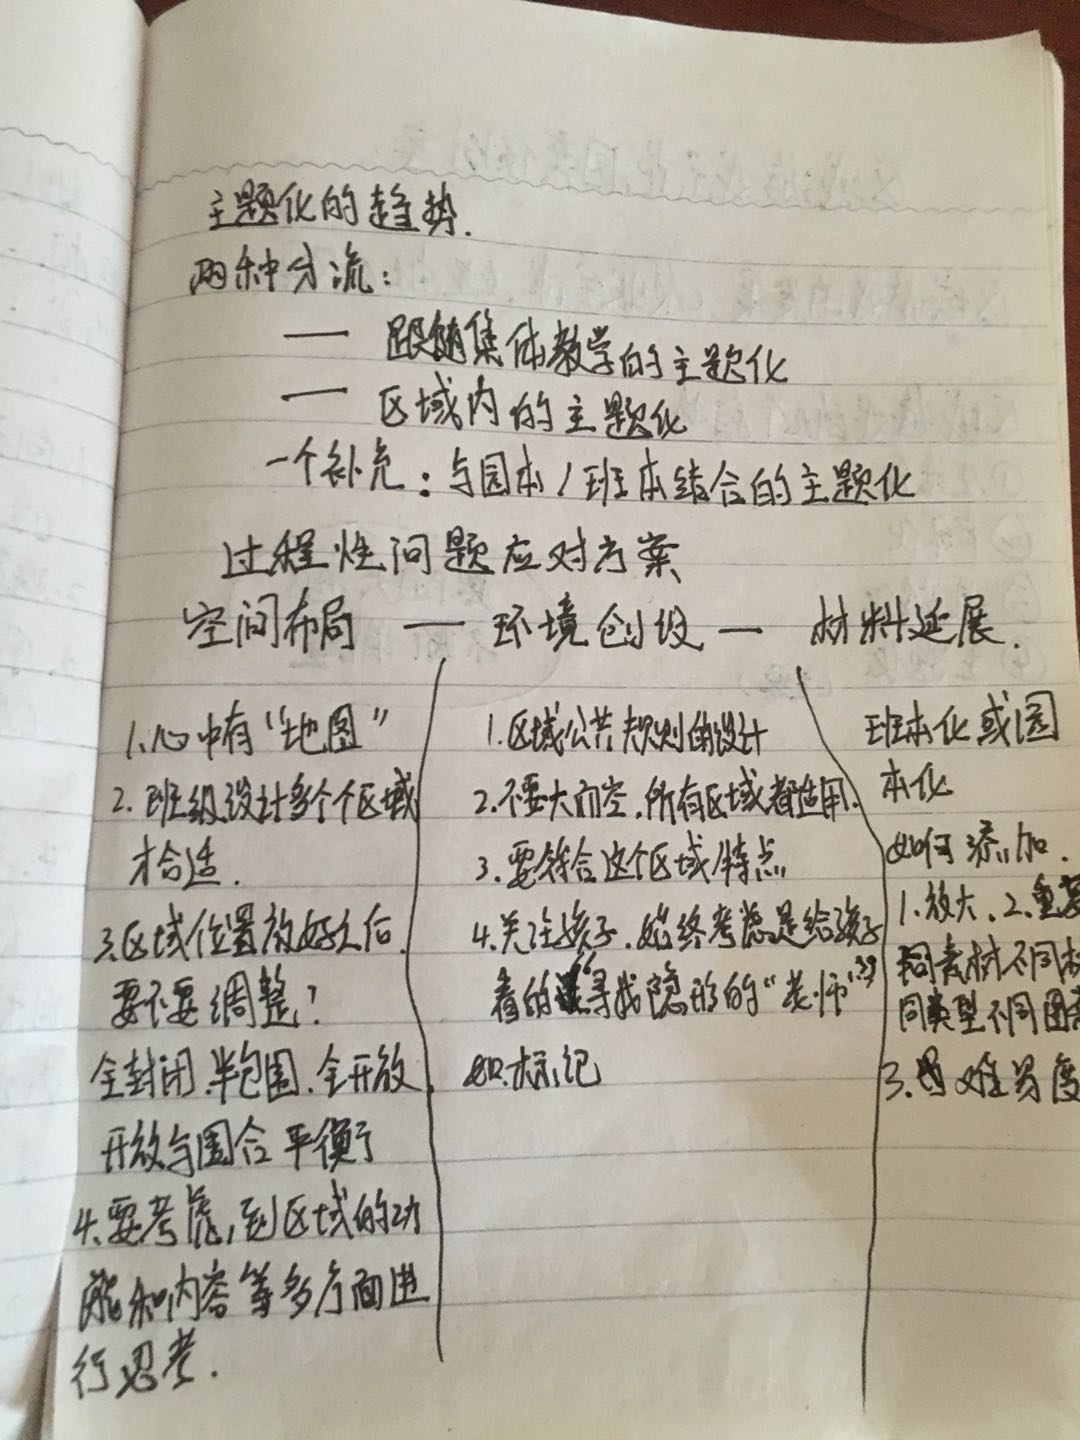 主题化的趋势.
两种分流:
— 跟随集体教学的主题化
— 区域内的主题化
一个补充:与园本/班本结合的主题化
过程性问题应对方案
空间布局 — 环境创设 — 材料延展.
1.心中有"地图"
2.班级设计多个个区域
才合适.
3.区域位置放好之后.
要不要调整?
全封闭.半包围.全开放.
开放与围合平衡
4.要考虑,到区域的功
能和内容等多方面进
行思考.
1.区域公共规则的设计
2.不要大而空.所有区域都适用.
3.要符合这个区域特点
4.关注孩子.始终考虑是给孩子
看的 寻找隐形的"老师"??
如.标记
班本化或园
本化
如何添加.
1.放大、2.重
同素材不同
同类型不同图
3. 难易度